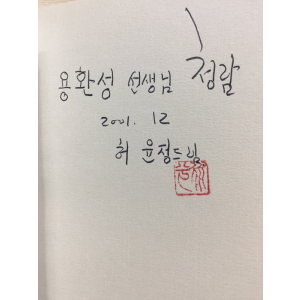 용환성 선생님 정람
2001. 12
허윤정드림